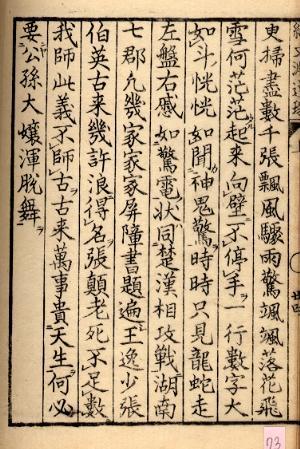 東掃盡數千張飄風驟雨驚颯颯落花飛
雪何茫茫起來向壁不停手一行數字大
如斗恍恍如聞神鬼驚時時只見龍蛇走
左盤右蹙如驚電狀同楚漢相攻戰湖南
七郡凢幾家家家屏障書題遍王逸少張
伯英古来幾許浪得名張顛老死不足數
我師此義不師古古来萬事貴天生何必
要公孫大孃渾脱舞
73